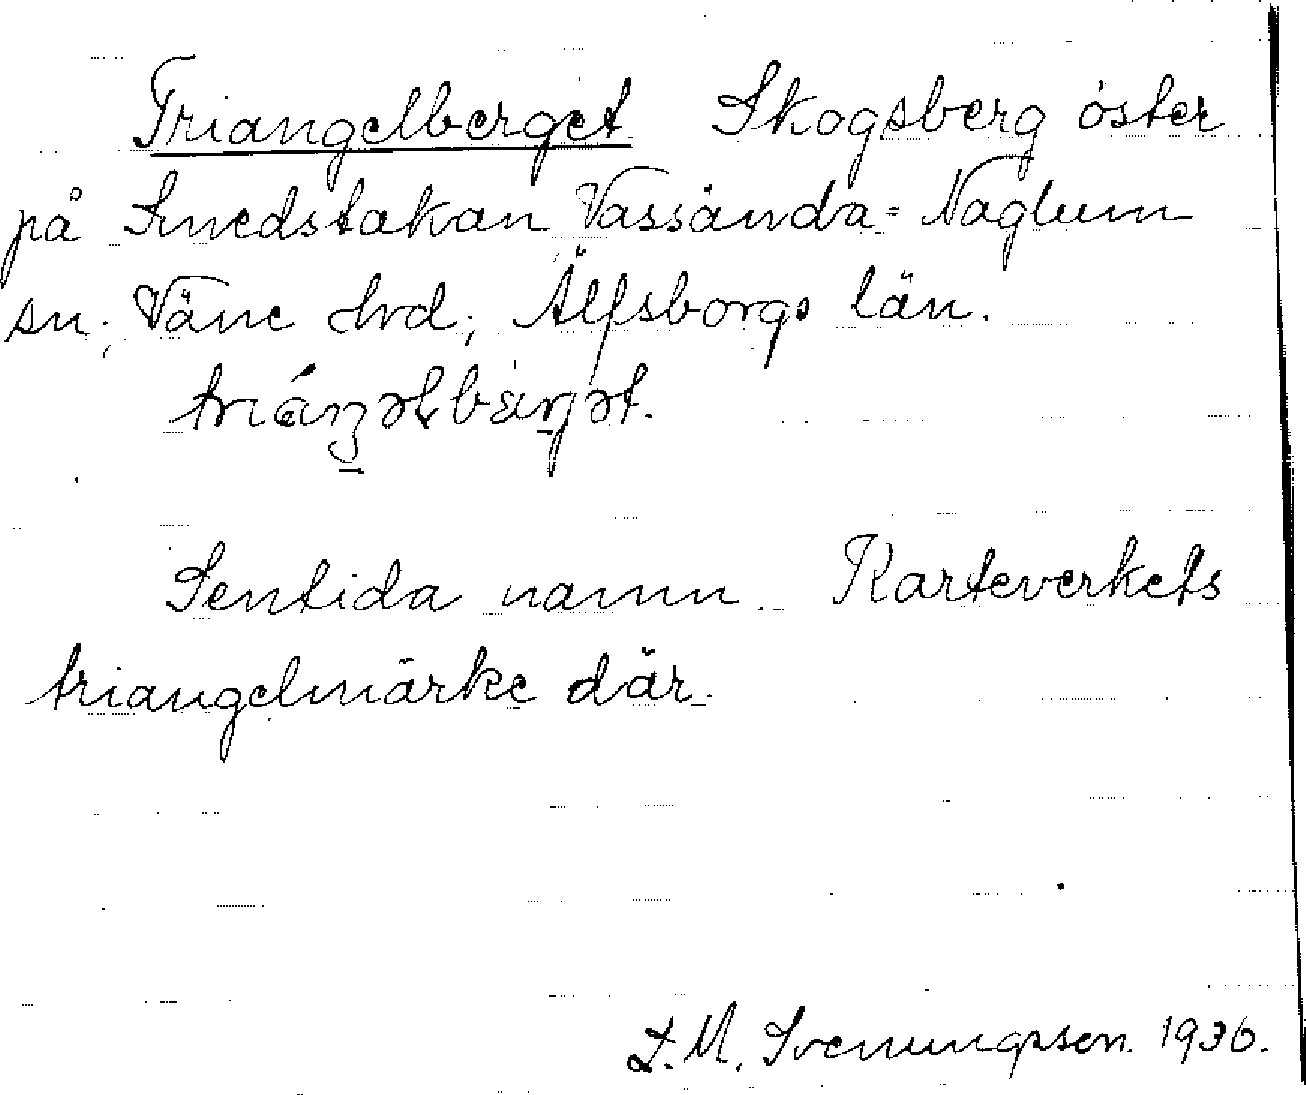 Triangelberget Skogsberg öster
på Smedstakan Vassända-Naglum
sn; Väne hrd; Älfsborgs län.
triáŋəlbærjət.
Sentida namn. Karteverkets
triangelmärke där.
L. M. Svenungsson. 1936.